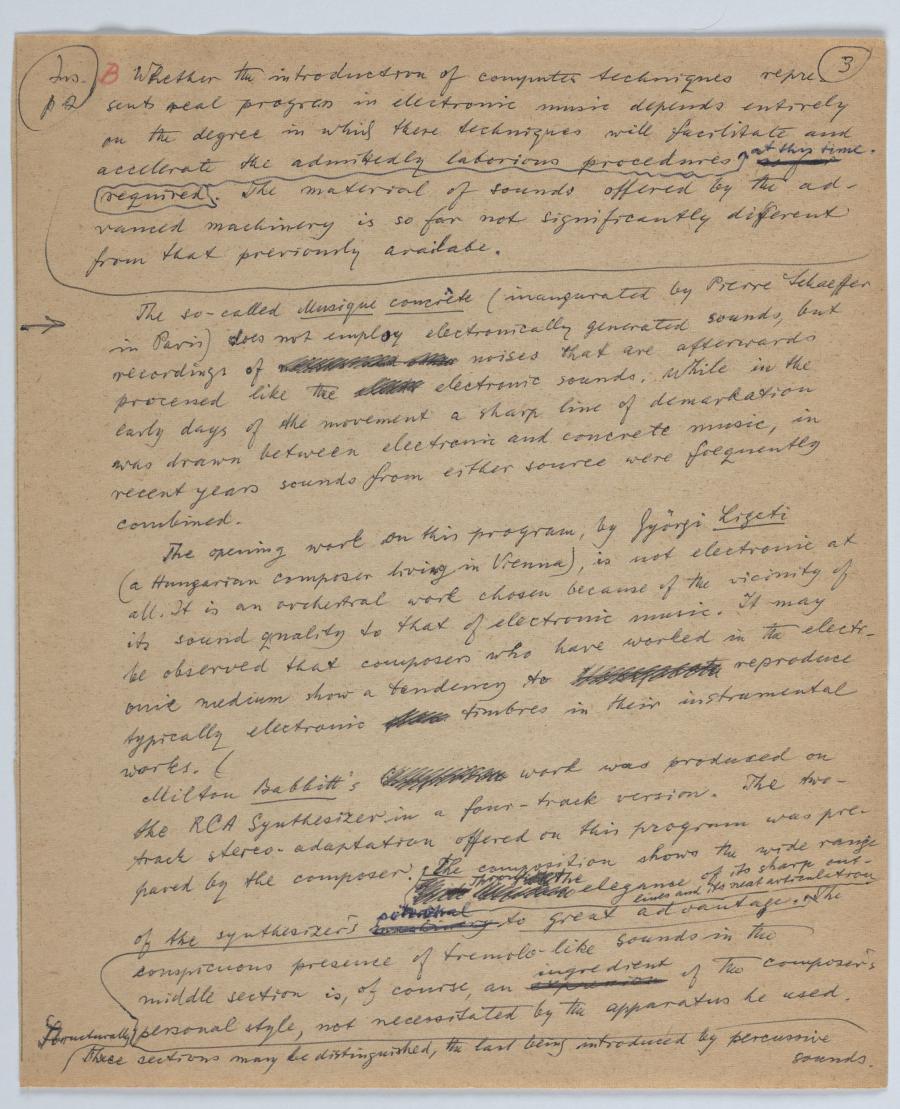 Ins. p 2
3
B Whether the introduction of computer techniques repre-
sents real progress in electronic music depends entirely
on the degree in which these techniques will facilitate and
accelerate the admittedly laborious procedures, at this time.
required. The material of sounds offered by the ad-
vanced machinery is so far not significantly different
from that previously availabe.
The so-called Musique concrète (inaugurated by Pierre Schaeffer
in Paris) does not employ electronically generated sounds, but
recordings of noises that are afterwards
processed like the electronic sounds. While in the
early days of the movement a sharp line of demarkation
was drawn between electronic and concrete music, in
recent years sounds from either source were frequently
combined.
The opening work on this program, by Györgi Ligeti
(a Hungarian composer living in Vienna), is not electronic at
all. It is an orchestral work chosen because of the vicinity of
its sound quality to that of electronic music. It may
be observed that composers who have worked in the electr-
onic medium show a tendency to reproduce
typically electronic timbres in their instrumental
works. (
Milton Babbitt's work was produced on
the RCA Synthesizer in a four-track version. The two-
track stereo-adaptation offered on this program was pre-
pared by the composer. The composition shows the wide range
through the elegance of its sharp out-
lines and its neat articulation
of the synthesizer's potential to great advantage. The
conspicuous presence of tremolo-like sounds in the
middle section is, of course, an ingredient of the composer's
personal style, not necessitated by the apparatus he used.
Structurally
three sections may be distinguished, the last being introduced by percussive
sounds.